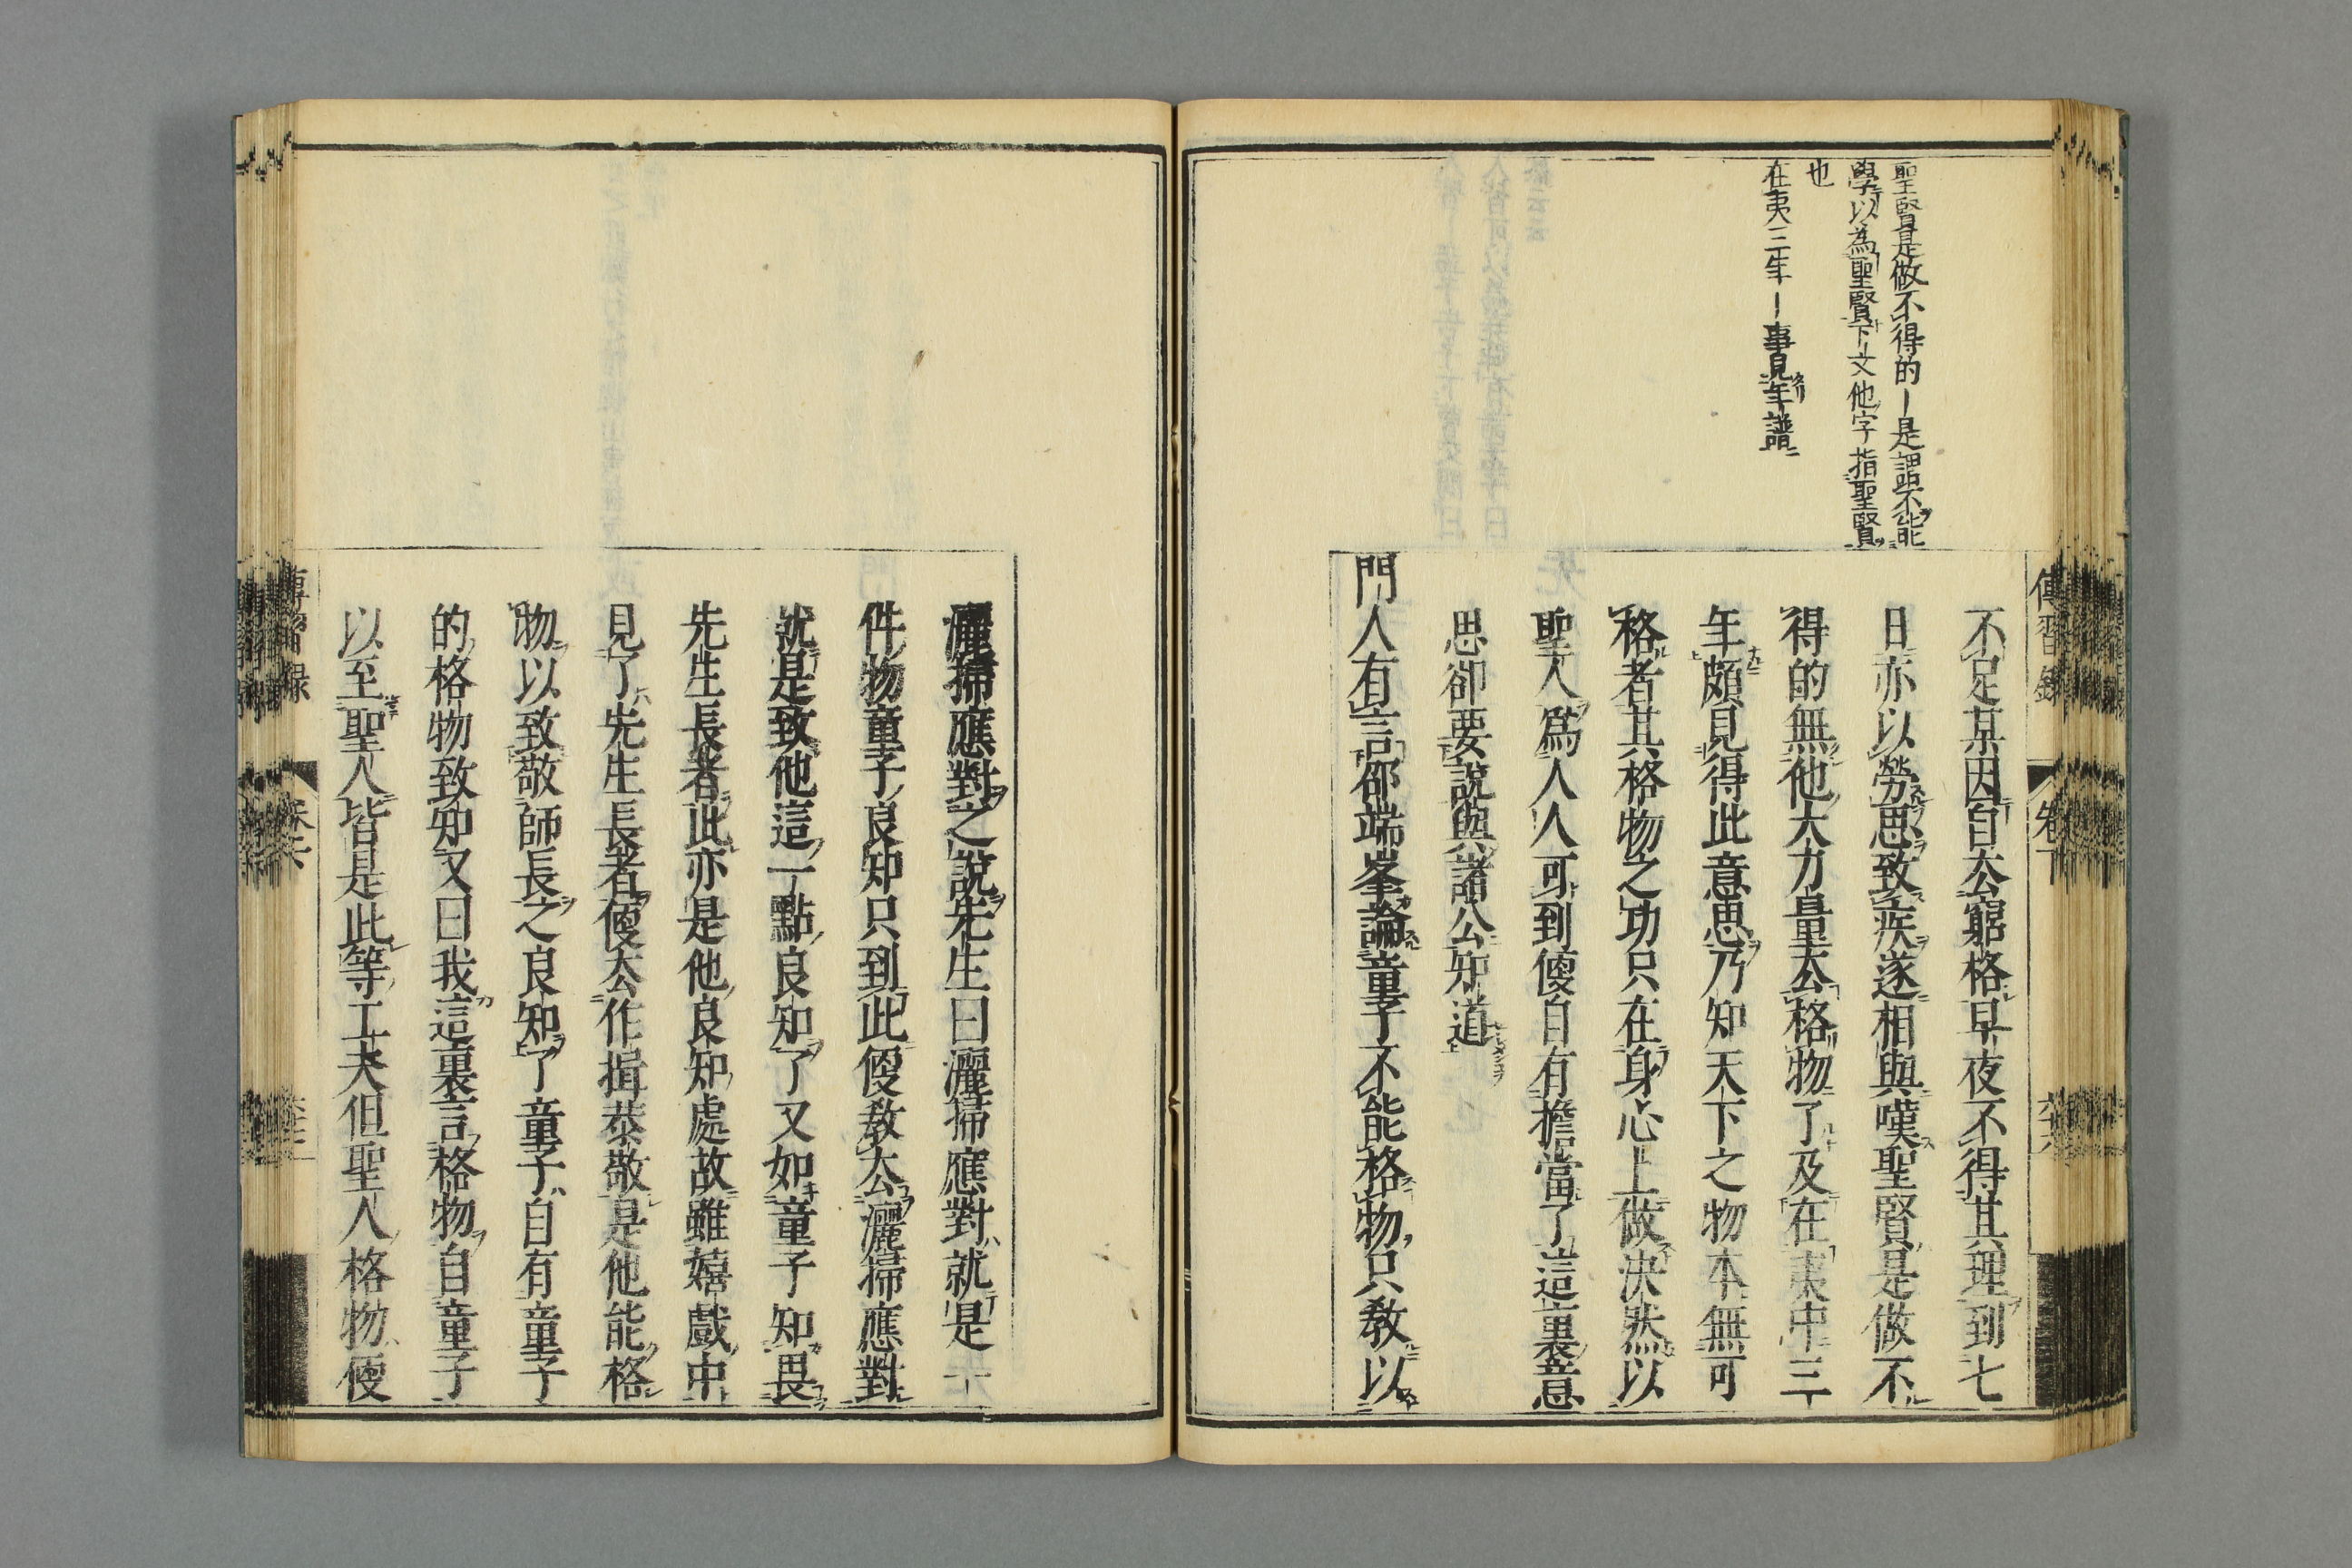 聖賢是做不得的ー是謂不能
學以為聖賢下文他字指聖賢
也
在夷三年ー事見年譜
傳習錄
卷下
不足某因自去窮格早夜不得其理到七
日亦以勞思致疾遂相與嘆聖賢是做不
得的無他大力量去格物了及在夷中三
年頗見得此意思乃知天下之物本無可
格者其格物之功只在身心上做決然以
聖人爲人人可到便自有擔當了這裏意
思卻要說與諸公知道
門人有言邵端峯論童子不能格物只教以
灑掃應對之說先生曰灑掃應對就是一
件物童子良知只到此便教去灑掃應對
就是致他這一點良知了又如童子知畏
先生長者此亦是他良知處故雖嬉戲中
見了先生長者便去作揖恭敬是他能格
物以致敬師長之良知了童子自有童子
的格物致知又曰我這裏言格物自童子
以至聖人皆是此等工夫但聖人格物便
傳習錄